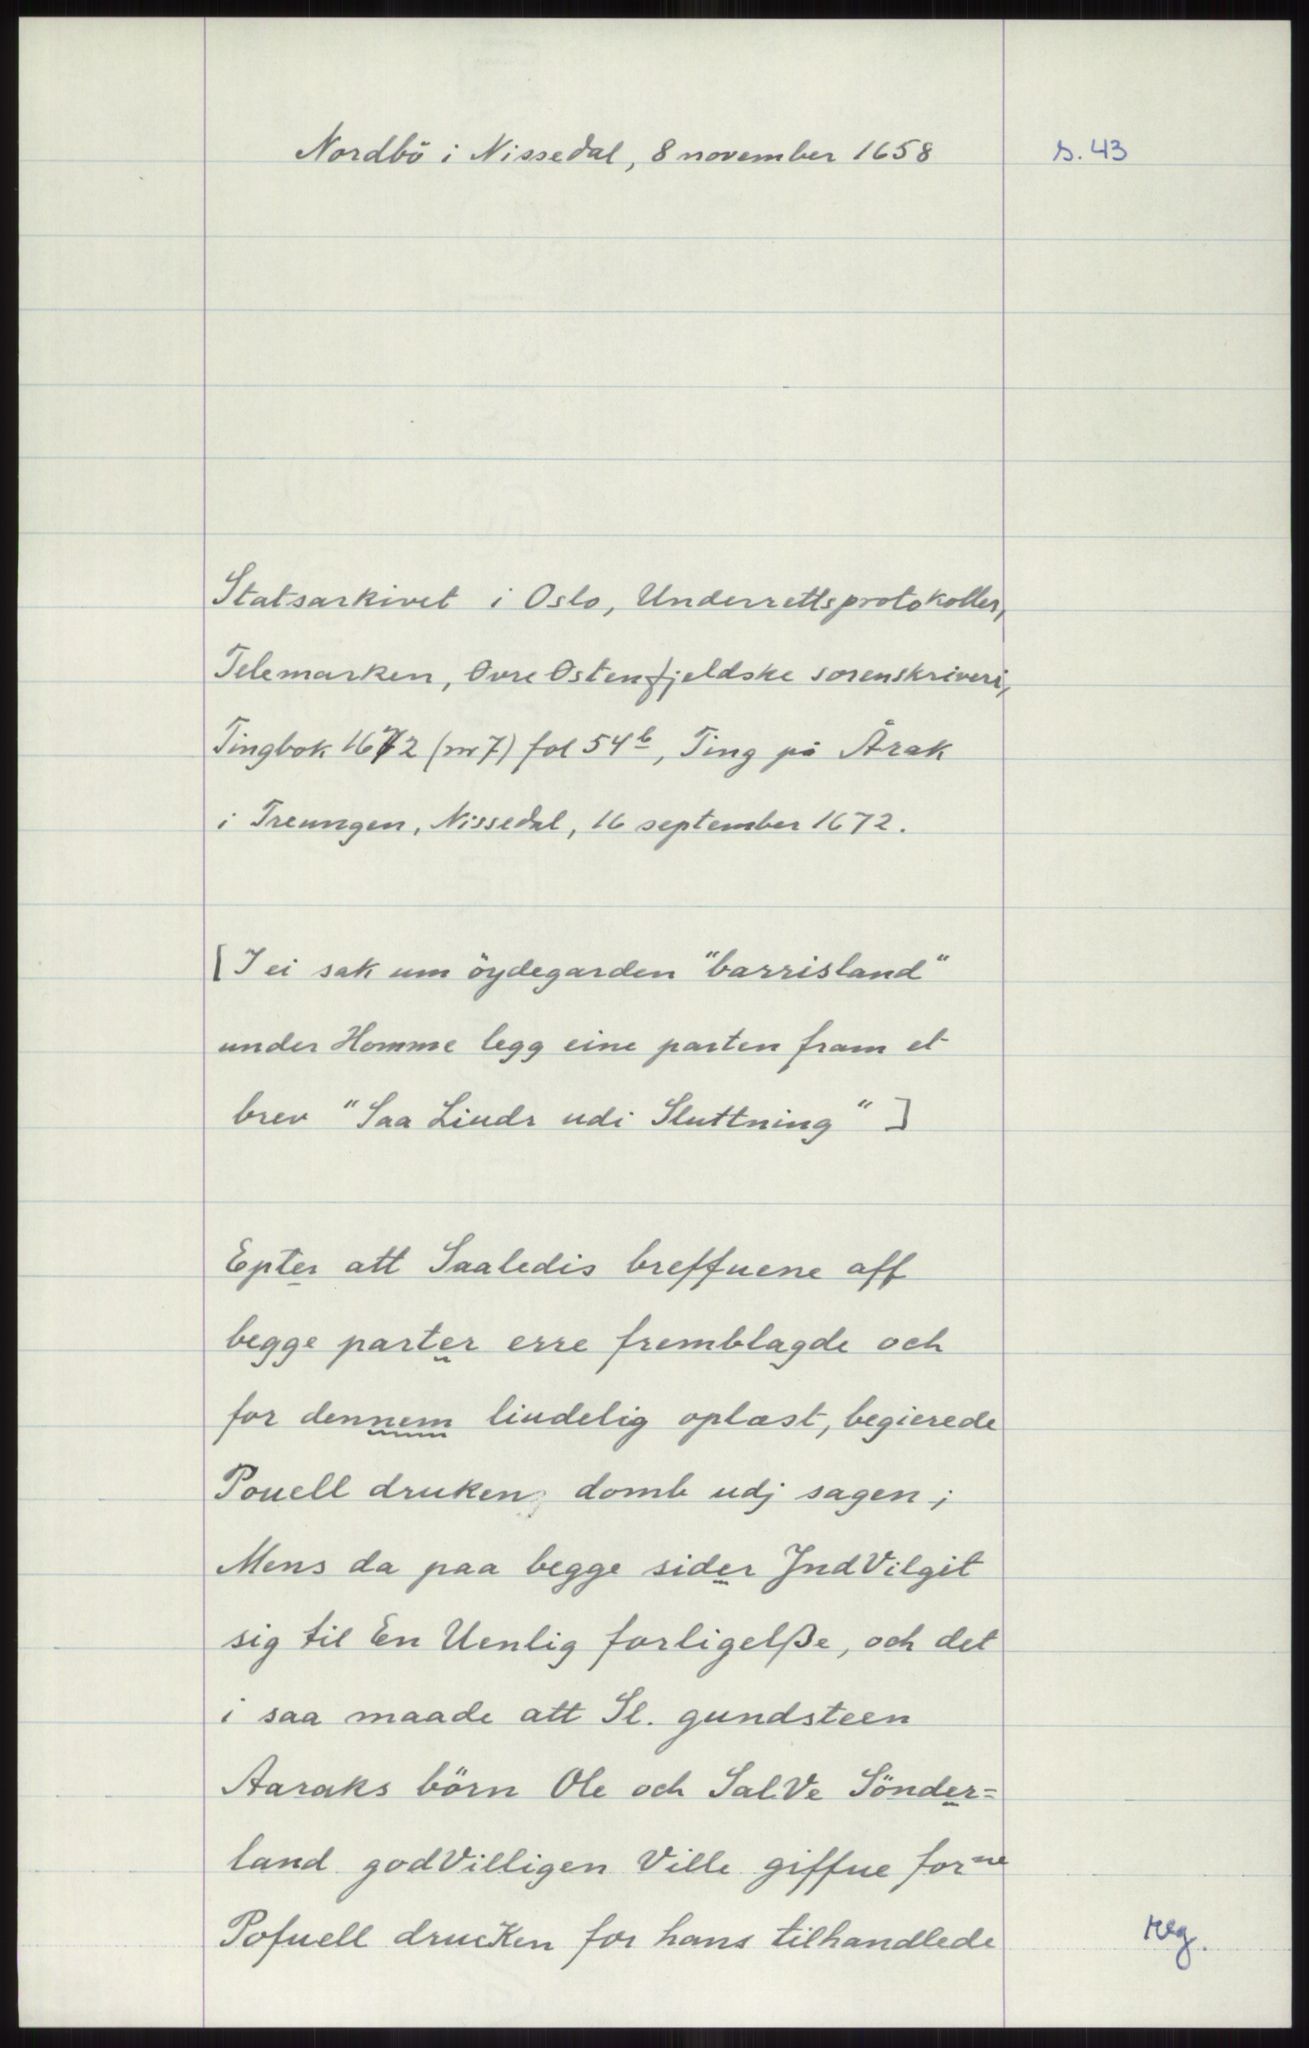 Nordbö i Nissedal, 8 november 1658
s. 43
Statsarkivet i Oslo, Underrettsprotokoller,
Telemarken, Øvre Østenfjeldske sorenskriveri,
Tingbok 1672 (nr 7) fol 54b, Ting på Årak
i Treungen, Nissedal, 16 september 1672.
[I ei sak um öydegarden "barrisland"
under Homme legg eine parten fram et
brev "Saa Liudr udi Sluttning"]
Epter att Saaledis breffuene aff
begge parter erre fremblagde och
for dennem liudelig oplæst, begierede
Pouell druken domb udj sagen;
Mens da paa begge sider JndVilgit
sig til En Uenlig forligelße, och det
i saa maade att Sl. gundsteen
Aaraks börn Ole och SalVe Sönder=
land godVilligen Ville giffue forne
Pofuell drucKen for hans tilhandlede
reg.